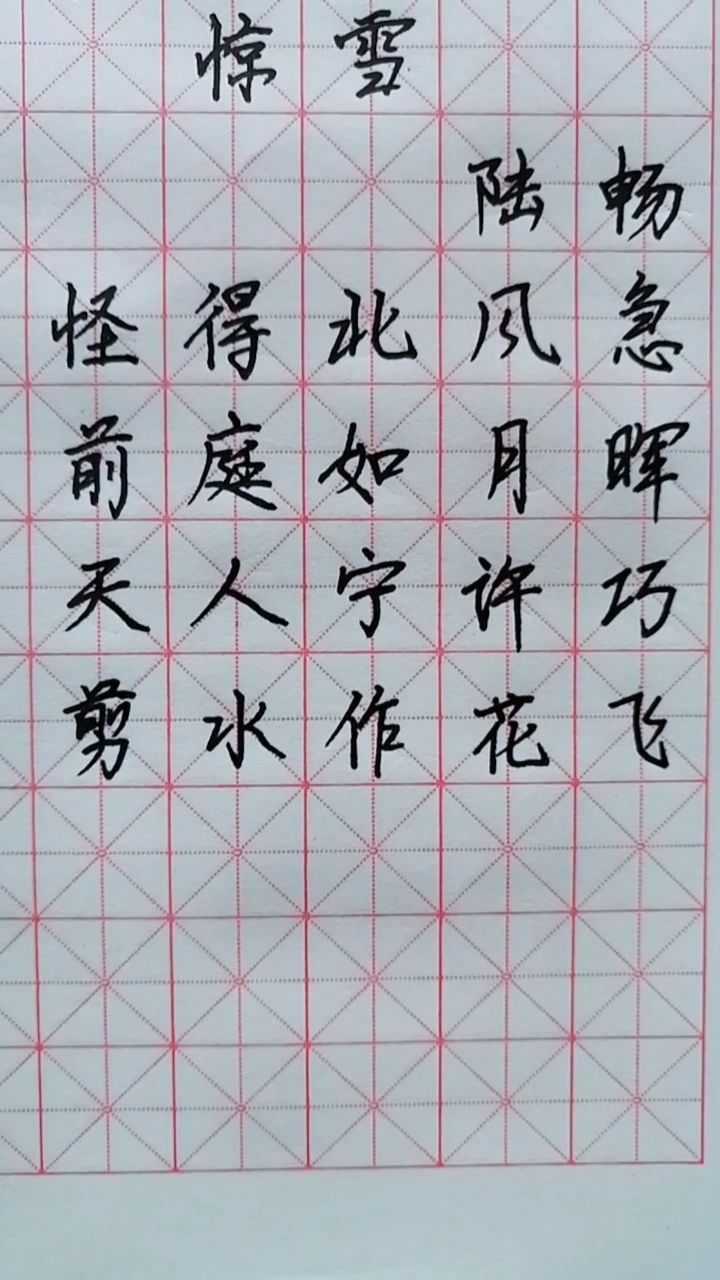 惊雪
陆畅
怪得北风急
前庭如月晖
天人宁许巧
剪水作花飞